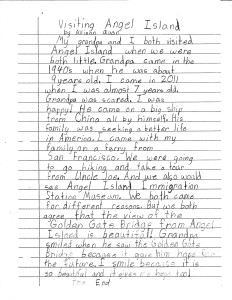 Visiting Angel Island
by
My grandpa and I both visited
Angel Island when we were
both little. Grandpa came in the
1940s when he was about
9 years old. I came in 2011
when I was almost 7 years old.
Grandpa was scared. I was
happy! He came on a big ship
from China all by himself. His
family was seeking a better life
in America. I came with my
family on a ferry from
San Francisco. We were going
to go hiking and take a tour
from Uncle Joe. And we also would
see Angel Island Immigration
Station Museum. We both came
for different reasons. But we both
agree that the view of the
Golden Gate Bridge from Angel
Island is beautiful! Grandpa
smiled when he saw the Golden Gate
Bridge because it gave him hope for
the future. I smile because it is
so beautiful and it gives me hope too!
The End